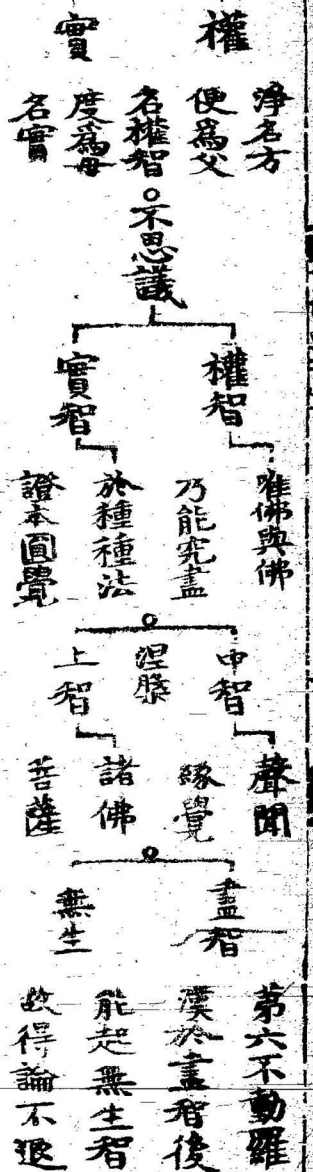 權
實
淨名方
便為父
名權智
度為母
名實
○不思議
權智
唯佛與佛
乃能究盡
實智
於種種法
證本圓覺
○
涅槃
中智
聲聞
緣覺
上智
諸佛
菩薩
○
盡智
無生
第六不動羅
漢於盡智後
能起無生智
故得論不退